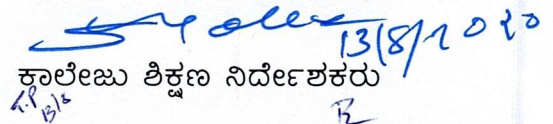 13/8/2020
ಕಾಲೇಜು ಶಿಕ್ಷಣ ನಿರ್ದೇಶಕರು
13/8